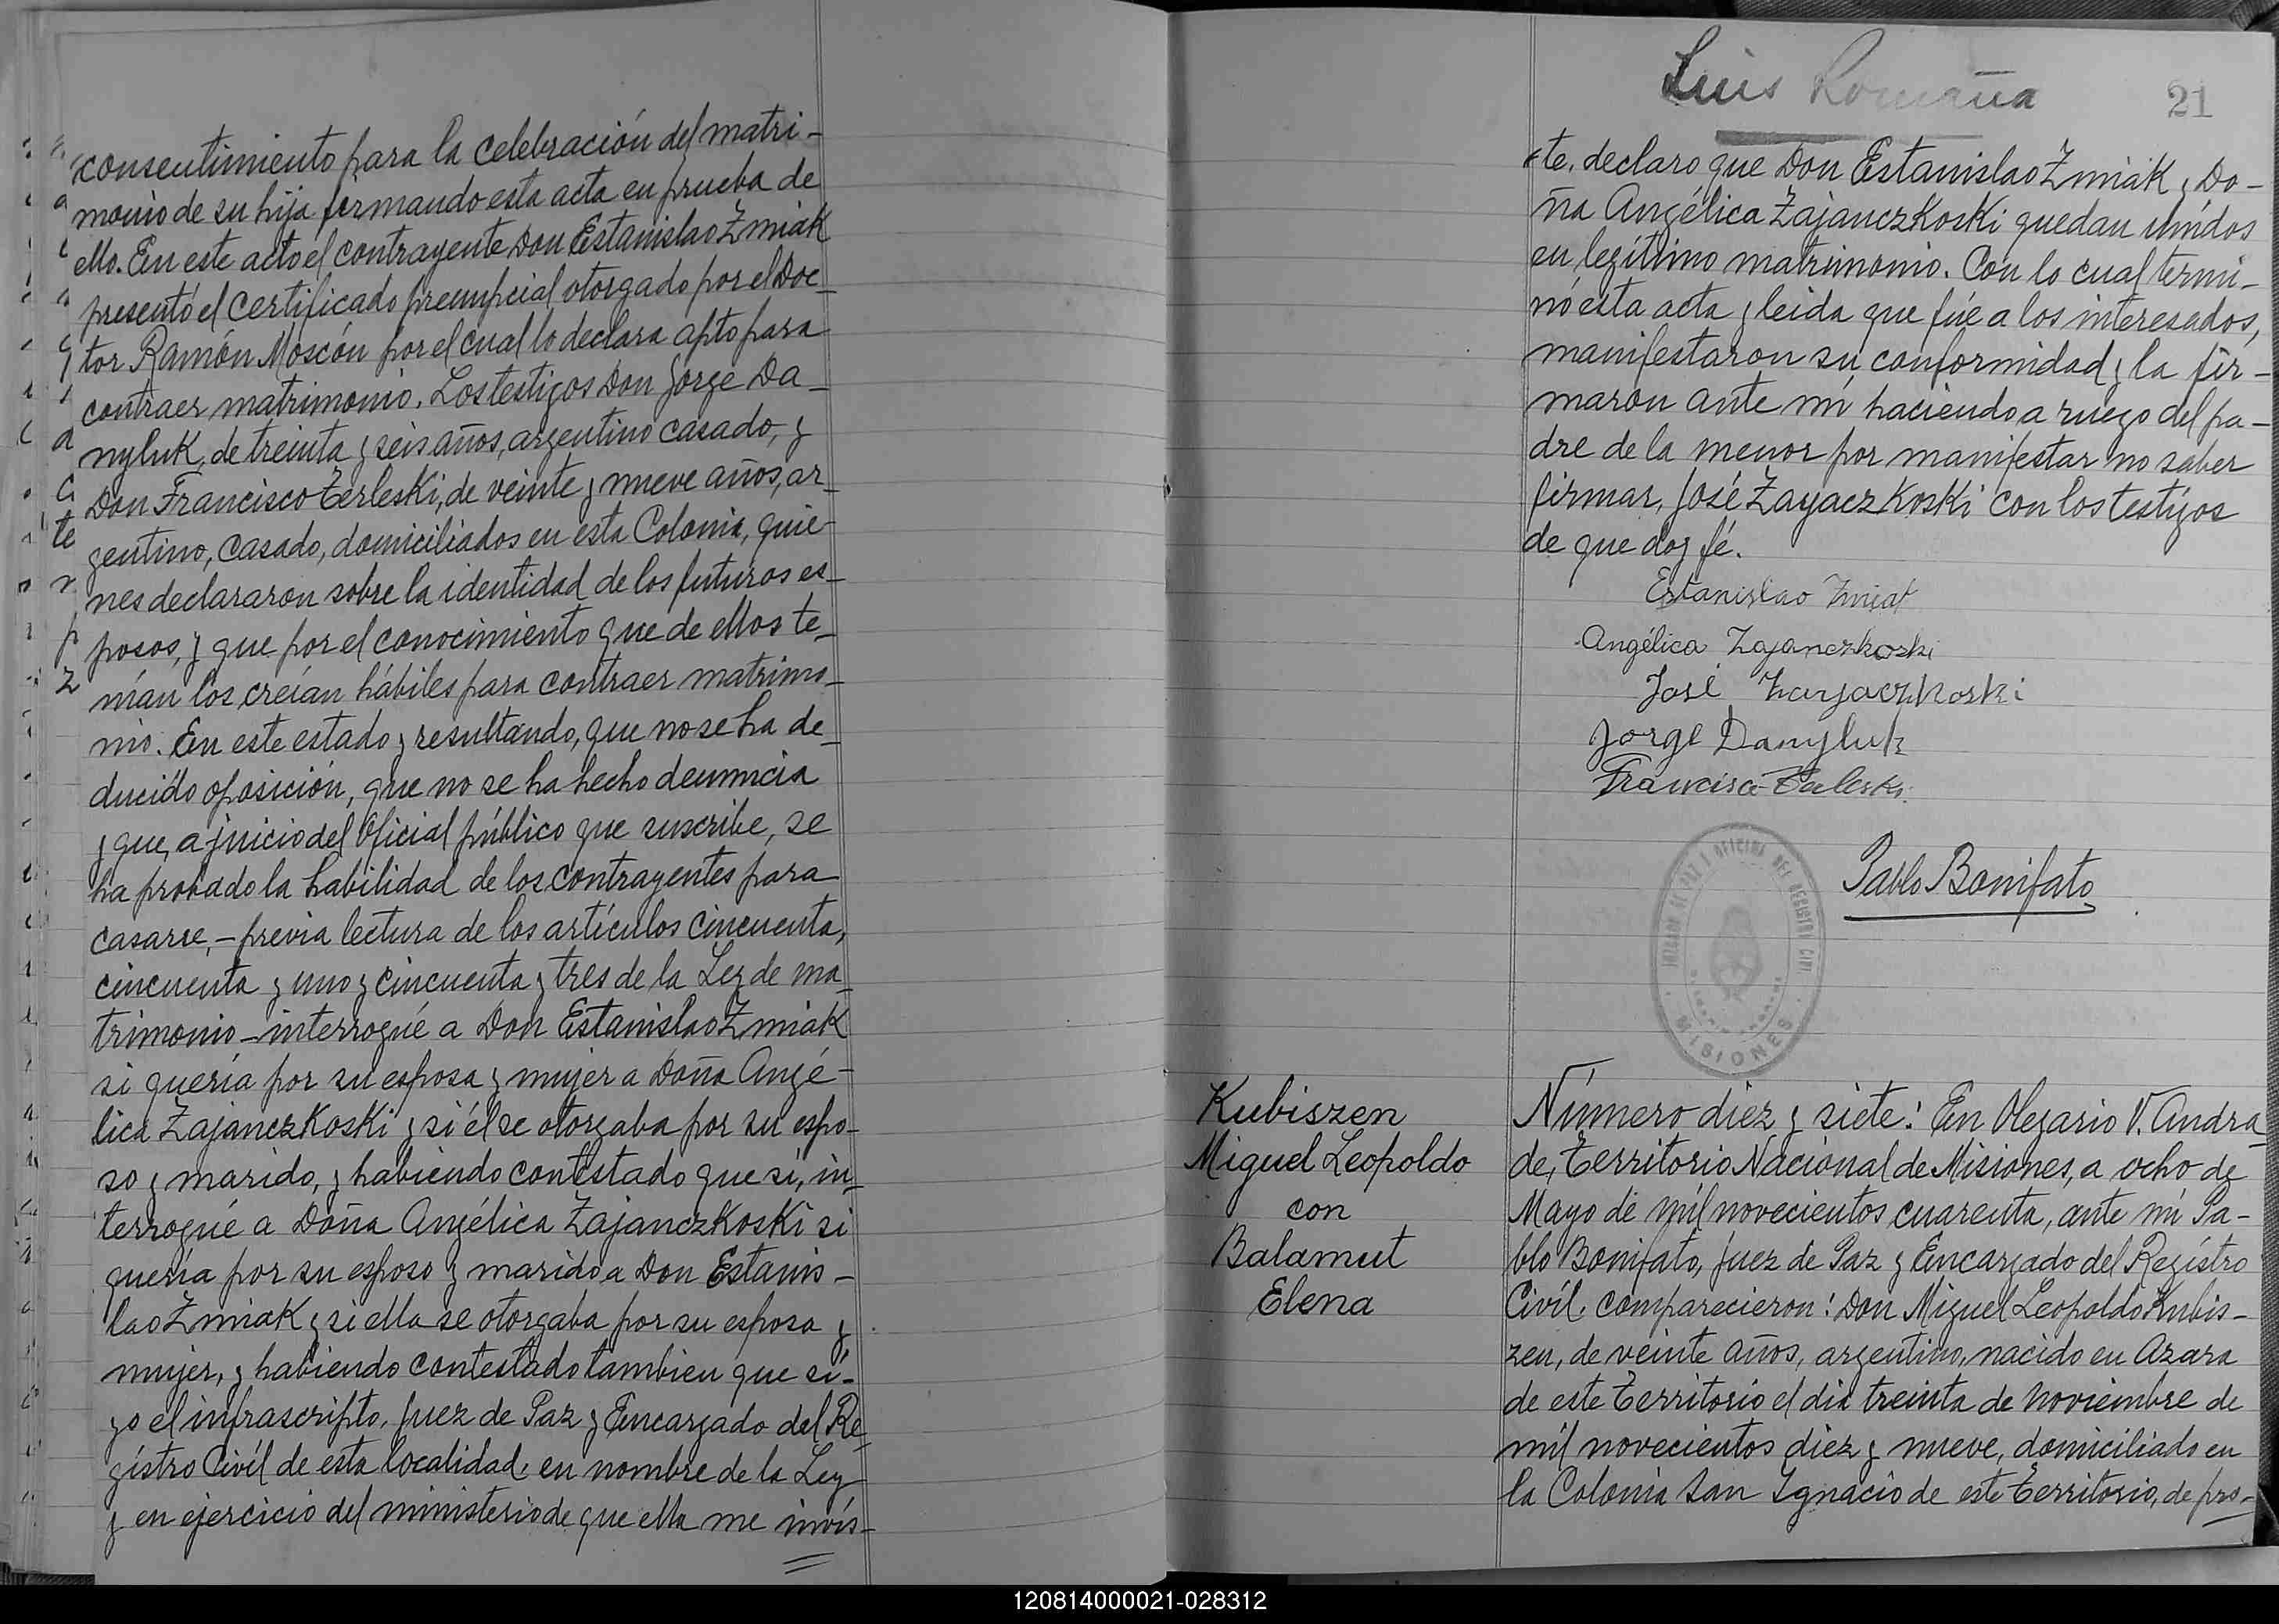 consentimiento para la celebración del matri-
monio de su hija firmando esta acta en prueba de
ello. En este acto el contrayente Don Estanislao Zmiak
presentó el certificado prenupcial otorgado por el Doc-
tor Ramón Moscón por el cual lo declara apto para
contraer matrimonio. Los testigos Don Jorge Da-
nyluk, de treinta y seis años, argentino casado, y
Don Francisco Terleski, de veinte y nueve años, ar-
gentino, casado, domiciliados en esta Colonia, quie-
nes declararon sobre la identidad de los futuros es-
posos, y que por el conocimiento que de ellos te-
nían los creían hábiles para contraer matrimo-
nio. En este estado y resultando, que no se ha de-
ducido oposición, que no se ha hecho denuncia
y que, a juicio del Oficial público que suscribe, se
ha probado la habilidad de los contrayentes para
casarse, - previa lectura de los artículos cincuenta,
cincuenta y uno y cincuenta y tres de la Ley de ma-
trimonio - interrogué a Don Estanislao Zmiak
si quería por su esposa y mujer a Doña Angé-
lica Zajanczkoski y si él se otorgaba por su espo-
so y marido, y habiendo contestado que sí, in-
terrogué a Doña Angélica Zajanczkoski si
quería por su esposo y marido a Don Estanis-
lao Zmiak y si ella se otorgaba por su esposa y
mujer, y habiendo contestado tambien que sí-
yo el infrascripto, Juez de Paz y Encargado del Re-
gistro Civíl de esta localidad, en nombre de la Ley
y en ejercicio del ministerio de que ella me invis-
Luis Romaña
21
te, declaro que Don Estanislao Zmiak y Do-
ña Angélica Zajanczkoski quedan unidos
en legítimo matrimonio. Con lo cual termi-
nó esta acta y leida que fúe a los interesados,
manifestaron su conformidad y la fir-
maron ante mí haciendo a ruego del pa-
dre de la menor por manifestar no saber
firmar, José Zayaczkoski con los testigos
de que doy fé.
Estanislao Zmiak
Angélica Zajanczkoski
José Zayaczkoski
Jorge Danyluk
Francisco Terleski
Pablo Bonifato
JUZGADO DE PAZ Y OFICINA DEL REGISTRO CIVIL
MISIONES
Kubiszen
Miguel Leopoldo
con
Balamut
Elena
Número diez y siete: En Olegario V. Andra-
de, Territorio Nacional de Misiones, a ocho de
Mayo de mil novecientos cuarenta, ante mí Pa-
blo Bonifato, Juez de Paz y Encargado del Registro
Civíl, comparecieron: Don Miguel Leopoldo Kubis-
zen, de veinte años, argentino, nacido en Azara
de este Territorio el día treinta de noviembre de
mil novecientos diez y nueve, domiciliado en
la Colonia San Ignacio de este Territorio, de pro-
120814000021-028312